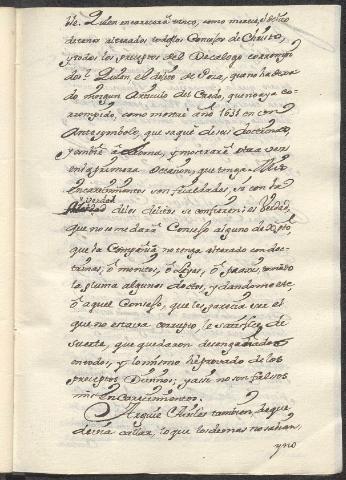 te. Quien encarecerá nunca, como merece, el delito
de tener alterados todos los Consejos de Christo,
y todos los preceptos del Decalogo corrompi-
dos? Quien, el delito de Poza, que no ha dexa-
do ningun Articulo del Credo, que no aya co-
rrompido, como mostré año 1631 en con
Antesymbolo, que saqué de sus doctrinas,
y embié à Roma, y mostraré otra vez
en la primera ocasion, que tenga? Mis
encarecimientos son frialdades, si con la
verdad de los delitos se confieren: es verdad
que no se me dará Consejo alguno de Xpto,
que la Compañia no tenga alterado con doc-
trinas, ò meritos, ò Leyes, ò
la pluma algunos doctos, y dandome este,
ò aquel Consejo, que les parecia ser el
que no estava corrupto, le satisfice de
suerte, que quedaron desengañados
en todos, y lo mismo he provado de los
preceptos Divinos; y assi no son falsos
mis encarecimientos.
Arguie Chirles tambien, de que
devia callar, lo que los demas no sabian,
y no